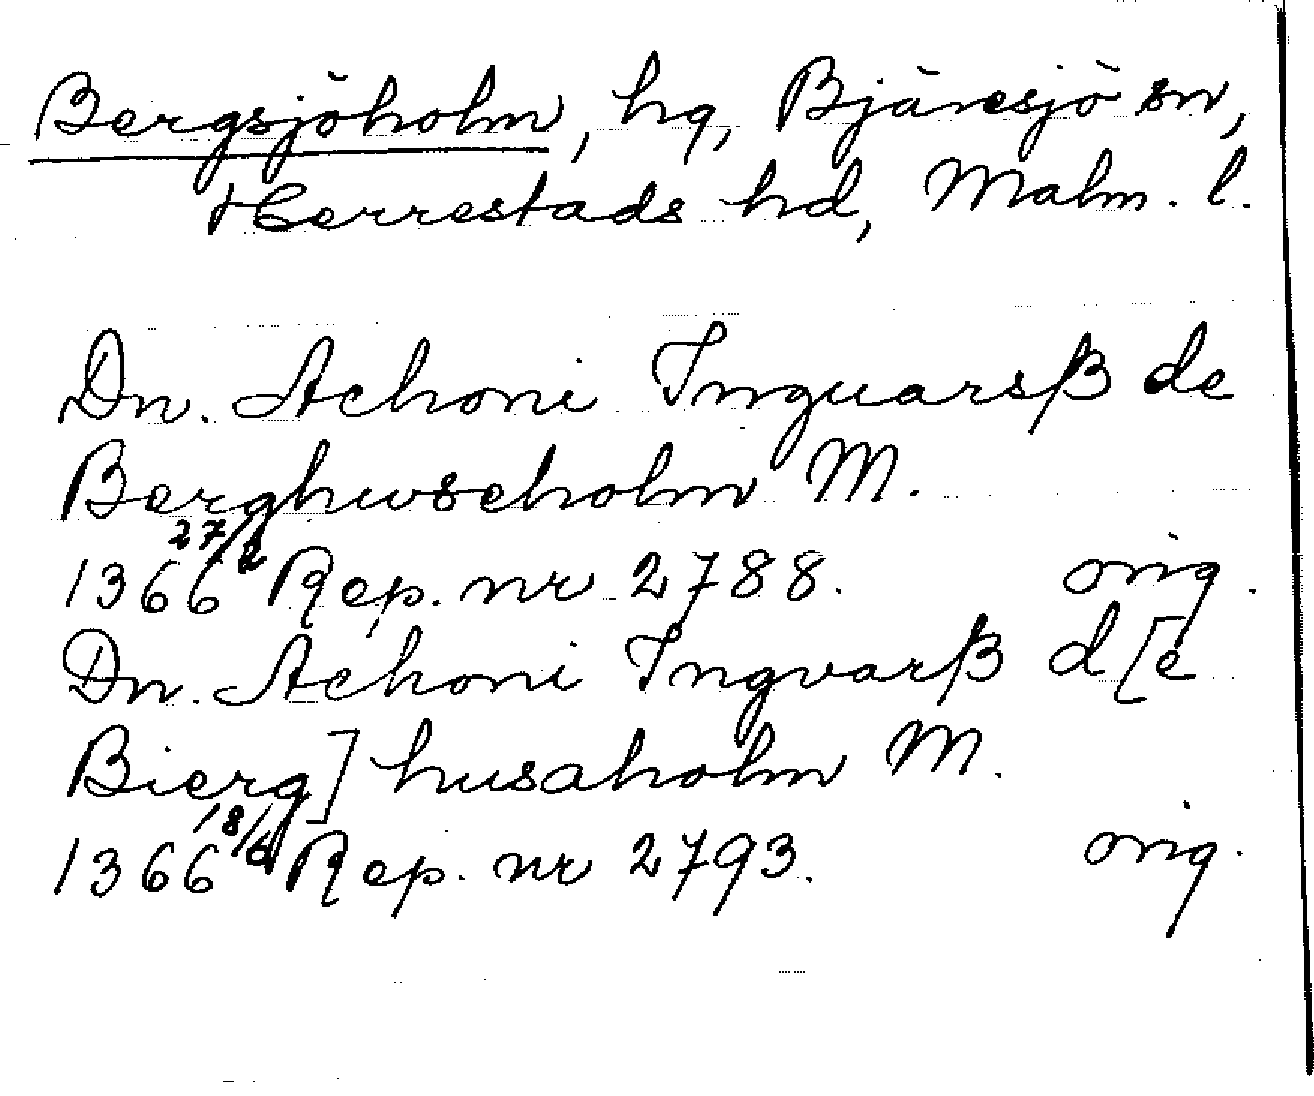 Bergsjöholm, hg, Bjäresjö sn,
Herrestads hd, Malm. l.
Dn. Achoni Inguarsß de
Berghwseholm M.
1366 27/2 Rep. nr 2788. orig.
Dn. Achoni Ingvarß d[e
Bierg]husaholm M.
1366 18/6 Rep. nr 2793. orig.